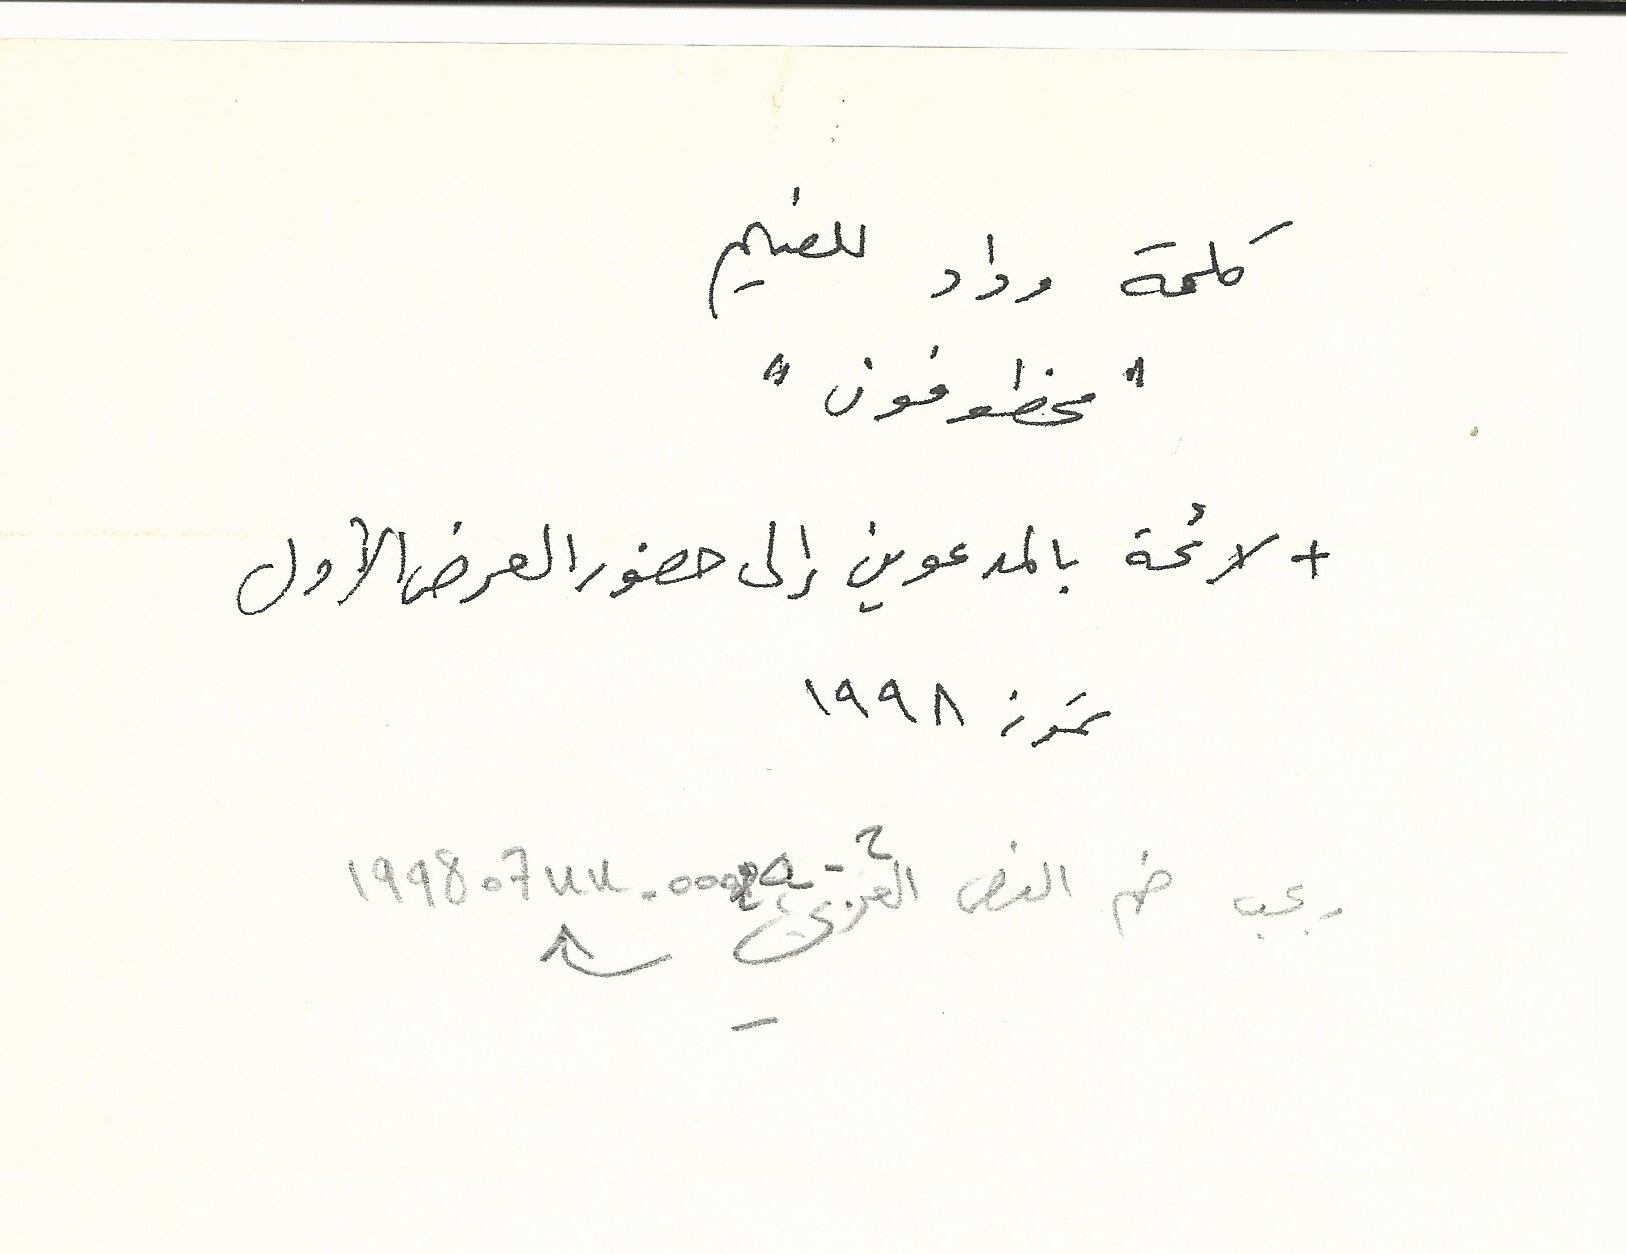 كلمة وداد للفيلم
"مخطوفون"
+ لائحة بالمدعوين إلى حضور العرض الأول
تموز ١٩٩٨
يجب ضم النص العربي
199807uu.000